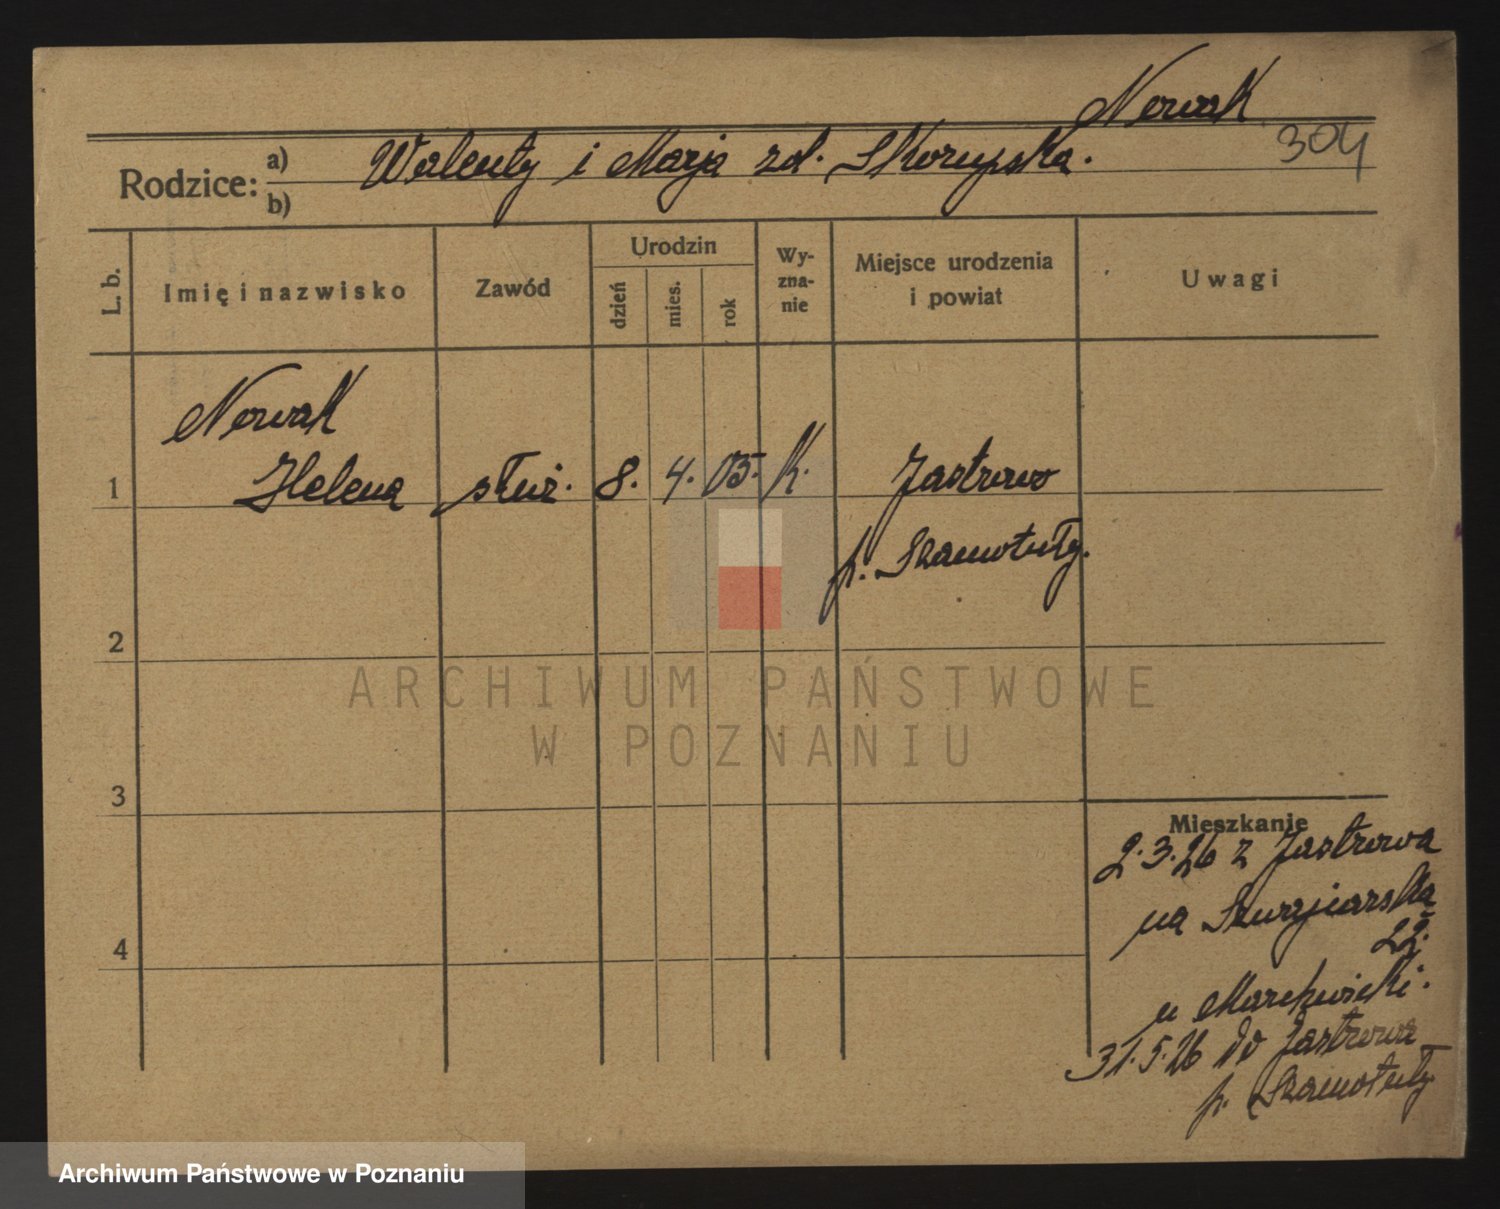 Nowak
304
Rodzice: a) Walenty i Marja zd. Skorupska.
b)
L. b.
Imię i nazwisko
Zawód
Urodzin
dzień
mies.
rok
Wy-
zna-
nie
Miejsce urodzenia
i powiat
Uwagi
Nowak
1 Helena służ. 8. 4. 05. k. Jastrowo
p. Szamotuły.
2
3
4
Mieszkanie
2.3.26 z Jastrowa
na
22.
u
31.5.26 do Jastrowa
p. Szamotuły
ARCHIWUM PAŃSTWOWE
W POZNANIU
Archiwum Państwowe w Poznaniu